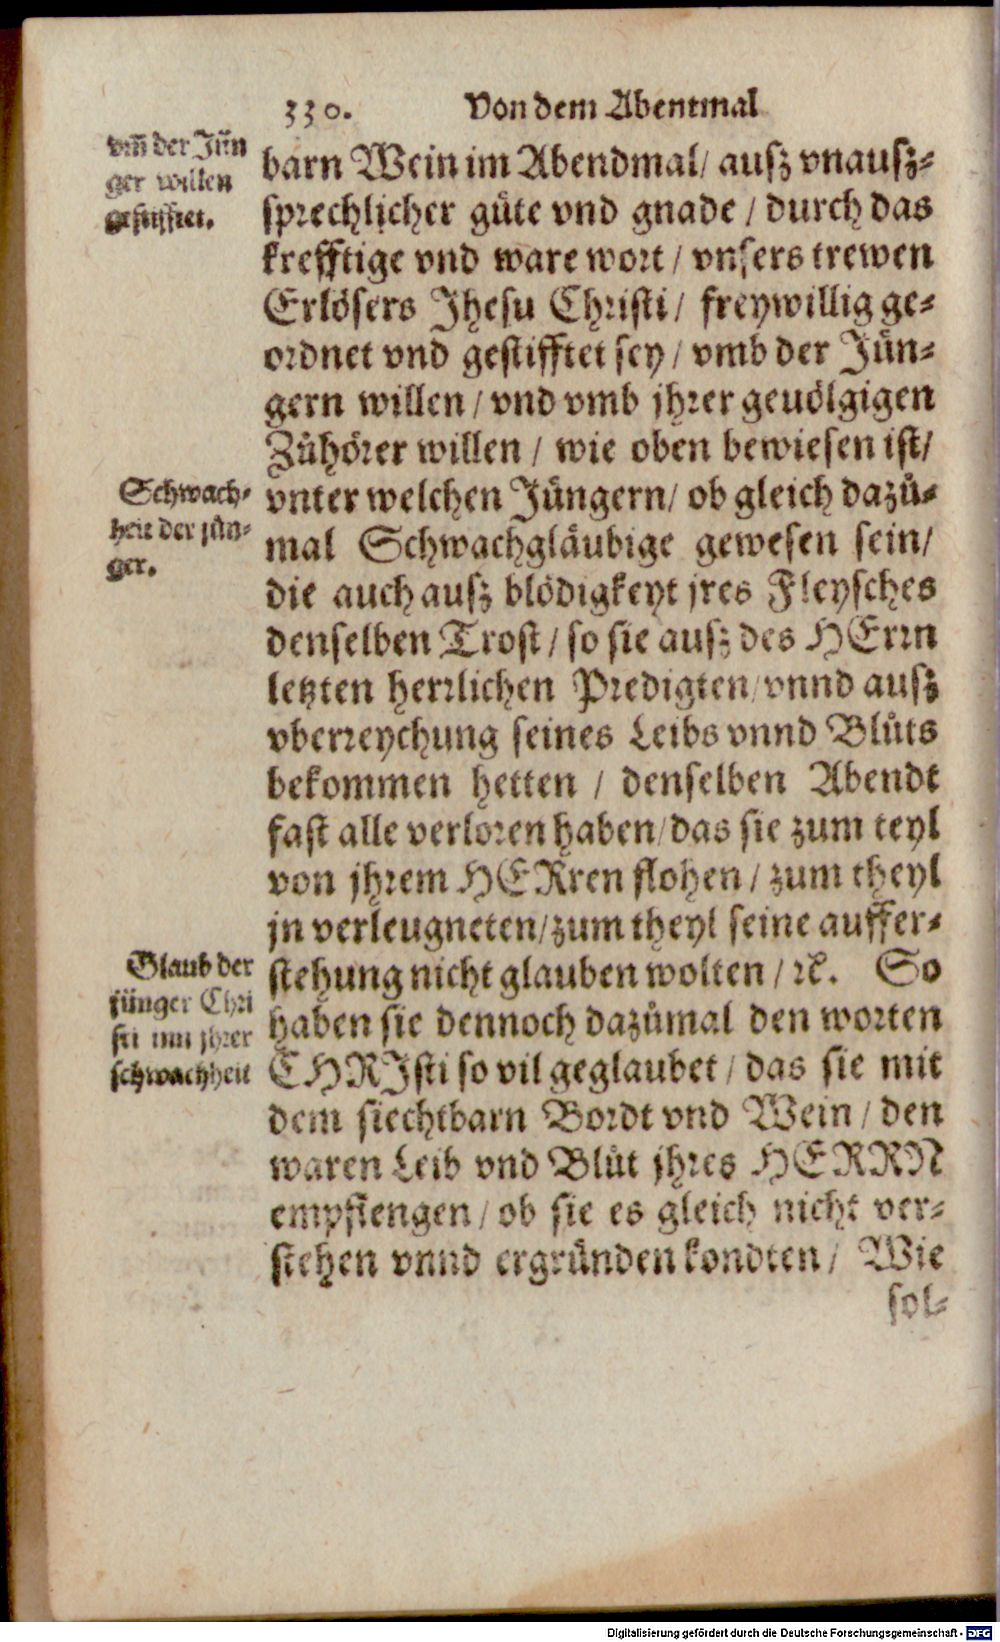 330. Von dem Abentmal
vm̃ der Jün
ger willen
gestifftet.
barn Wein im Abendmal/ ausz vnausz-
sprechlicher güte vnd gnade / durch das
krefftige vnd ware wort / vnsers trewen
Erlösers Jhesu Christi / freywillig ge-
ordnet vnd gestifftet sey / vmb der Jün-
gern willen / vnd vmb jhrer geuölgigen
Zůhörer willen / wie oben bewiesen ist/
Schwach-
heit der jün-
ger.
vnter welchen Jüngern/ ob gleich dazů-
mal Schwachgläubige gewesen sein/
die auch ausz blödigkeyt jres Fleysches
denselben Trost / so sie ausz des HErrn
letzten herrlichen Predigten/ vnnd ausz
vberreychung seines Leibs vnnd Blůts
bekommen hetten / denselben Abendt
fast alle verloren haben/ das sie zum teyl
von jhrem HERren flohen / zum theyl
jn verleugneten/ zum theyl seine auffer-
Glaub der
jünger Chri
sti inn jhrer
schwachheit
stehung nicht glauben wolten / ꝛc. So
haben sie dennoch dazůmal den worten
CHRJsti so vil geglaubet / das sie mit
dem siechtbarn Bordt vnd Wein / den
waren Leib vnd Blůt jhres HERRN
empfiengen / ob sie es gleich nicht ver-
stehen vnnd ergründen kondten / Wie
sol-
Digitalisierung gefördert durch die Deutsche Forschungsgemeinschaft - DFG